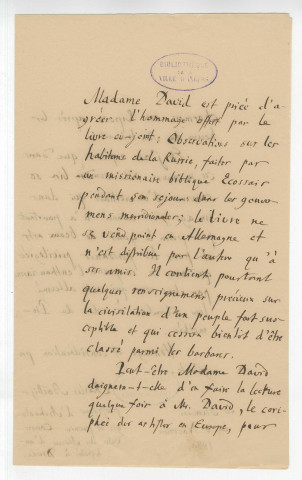 BIBLIOTHÈQUE
DE LA
VILLE D'ANGERS
Madame David est priée d'a-
gréer l'hommage offert par le
livre cy-joint: Observations sur les
habitens de la Russie, faites par
un missionaire biblique Ecossais
pendant son sejour dans les gouver-
mens meridionales; le livre ne
se vend point en Allemagne et
n'est distribué par l'auteur qu'à
ses amis. Il contient pourtant
quelques renseignemens precieux sur
la civilsation d'un peuple fort sus-
ceptible et qui cessera bientot d'être
classé parmi les barbares.
Peut-être Madame David
daignera-t-elle d'en faire la lecture
quelque fois à Mr. David, le cori-
phée des artistes en Europe, pour